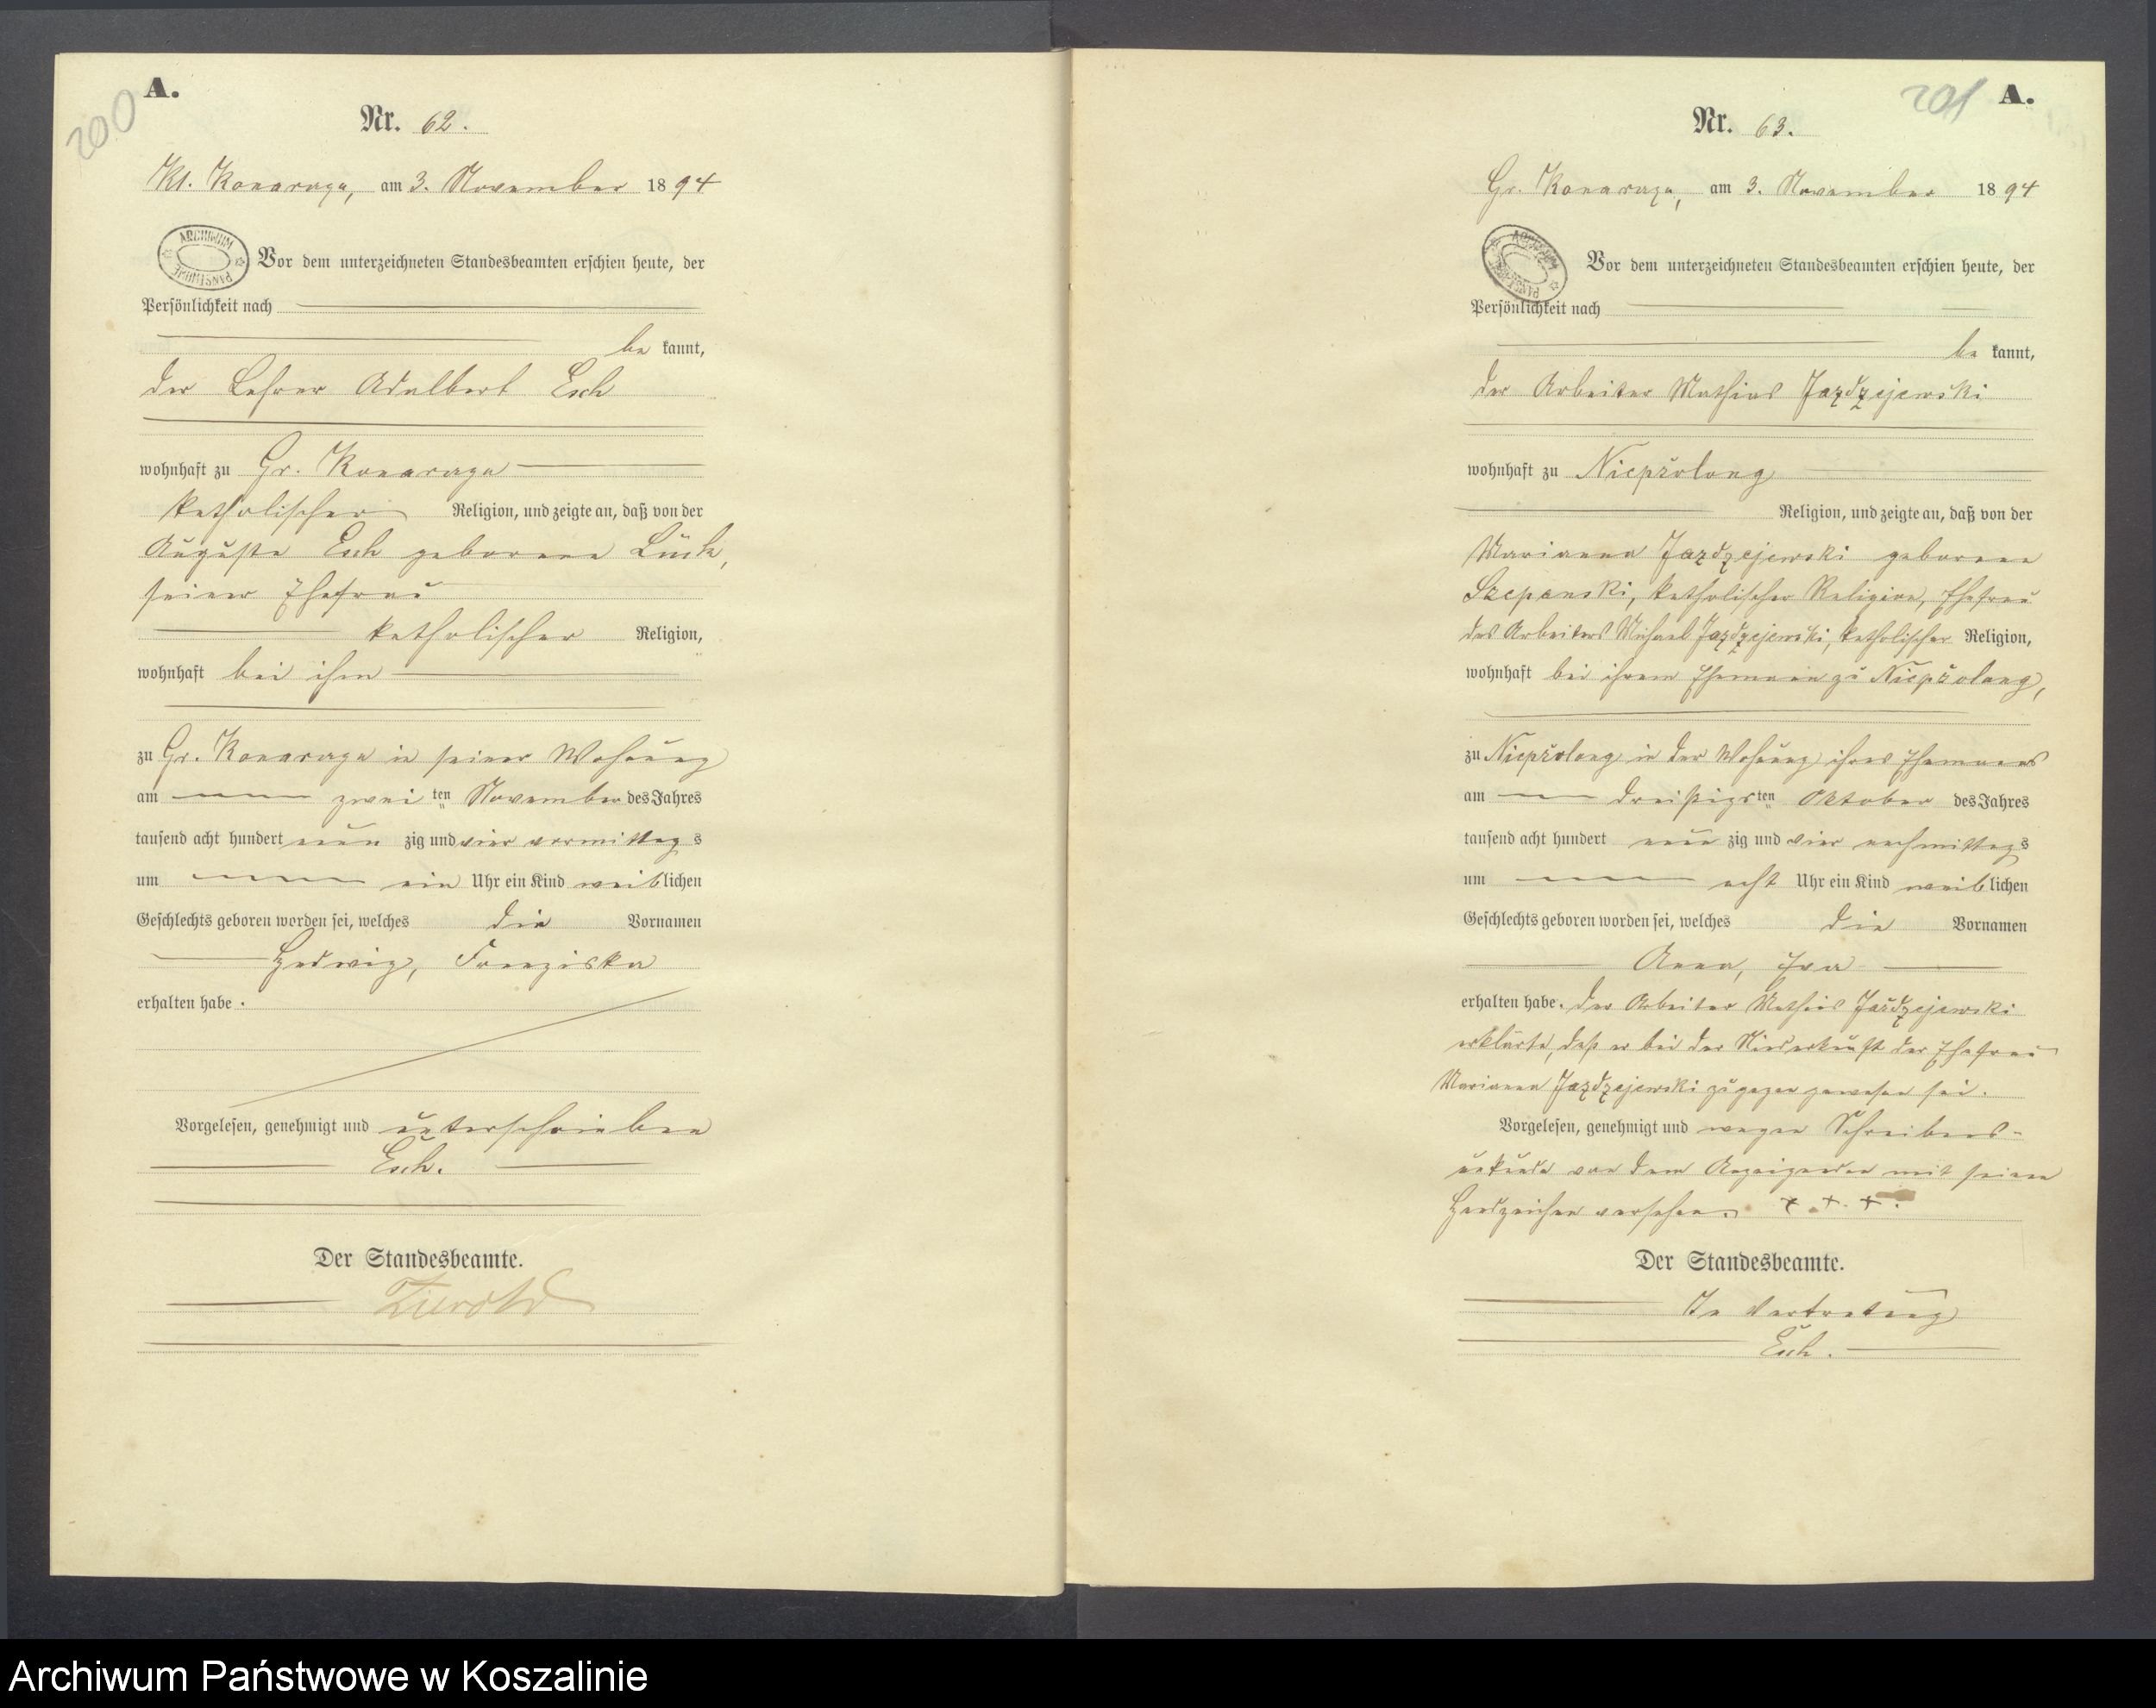 200
A.
Nr. 62.
Kl. Konarczyn, am 3. November 1894
ARCHIWUM PAŃSTWOWE
Vor dem unterzeichneten Standesbeamten erschien heute, der
Persönlichkeit nach
be kannt,
der Lehrer Adalbert Esch
wohnhaft zu Gr. Konarczyn
katholischer Religion, und zeigte an, daß von der
Auguste Esch geborene Lück,
seiner Ehefrau
katholischer Religion,
wohnhaft bei ihm
zu Gr. Konarczyn in seiner Wohnung
am zwei ten November des Jahres
tausend acht hundert neun zig und vier vormittag s
um ein Uhr ein Kind weiblichen
Geschlechts geboren worden sei, welches die Vornamen
Hedwig, Franziska
erhalten habe.
Vorgelesen, genehmigt und unterschrieben
Esch.
Der Standesbeamte.
201
A.
Nr. 63.
Gr. Konarczyn, am 3. November 1894
ARCHIWUM PAŃSTWOWE
Vor dem unterzeichneten Standesbeamten erschien heute, der
Persönlichkeit nach
be kannt,
der Arbeiter Mathias Jazdzejewski
wohnhaft zu Niepszolong
Religion, und zeigte an, daß von der
Marianna Jazdzejewski geborene
Szepanski, katholischer Religion, Ehefrau
des Arbeiters Michael Jazdzejewski, katholischer Religion,
wohnhaft bei ihrem Ehemann zu Niepszolong,
zu Niepszolong in der Wohnung ihres Ehemannes
am dreißigsten Oktober des Jahres
tausend acht hundert neun zig und vier nachmittags
um acht Uhr ein Kind weiblichen
Geschlechts geboren worden sei, welches die Vornamen
Anna, Eva
erhalten habe. Der Arbeiter Mathias Jazdzejewski
erklärte, daß er bei der Niederkunft der Ehefrau
Marianna Jazdzejewski zugegen gewesen sei.
Vorgelesen, genehmigt und wegen Schreibens-
unkunde von dem Anzeigenden mit seinen
Handzeichen versehen. + + +.
Der Standesbeamte.
In Vertretung
Esch.
Archiwum Państwowe w Koszalinie